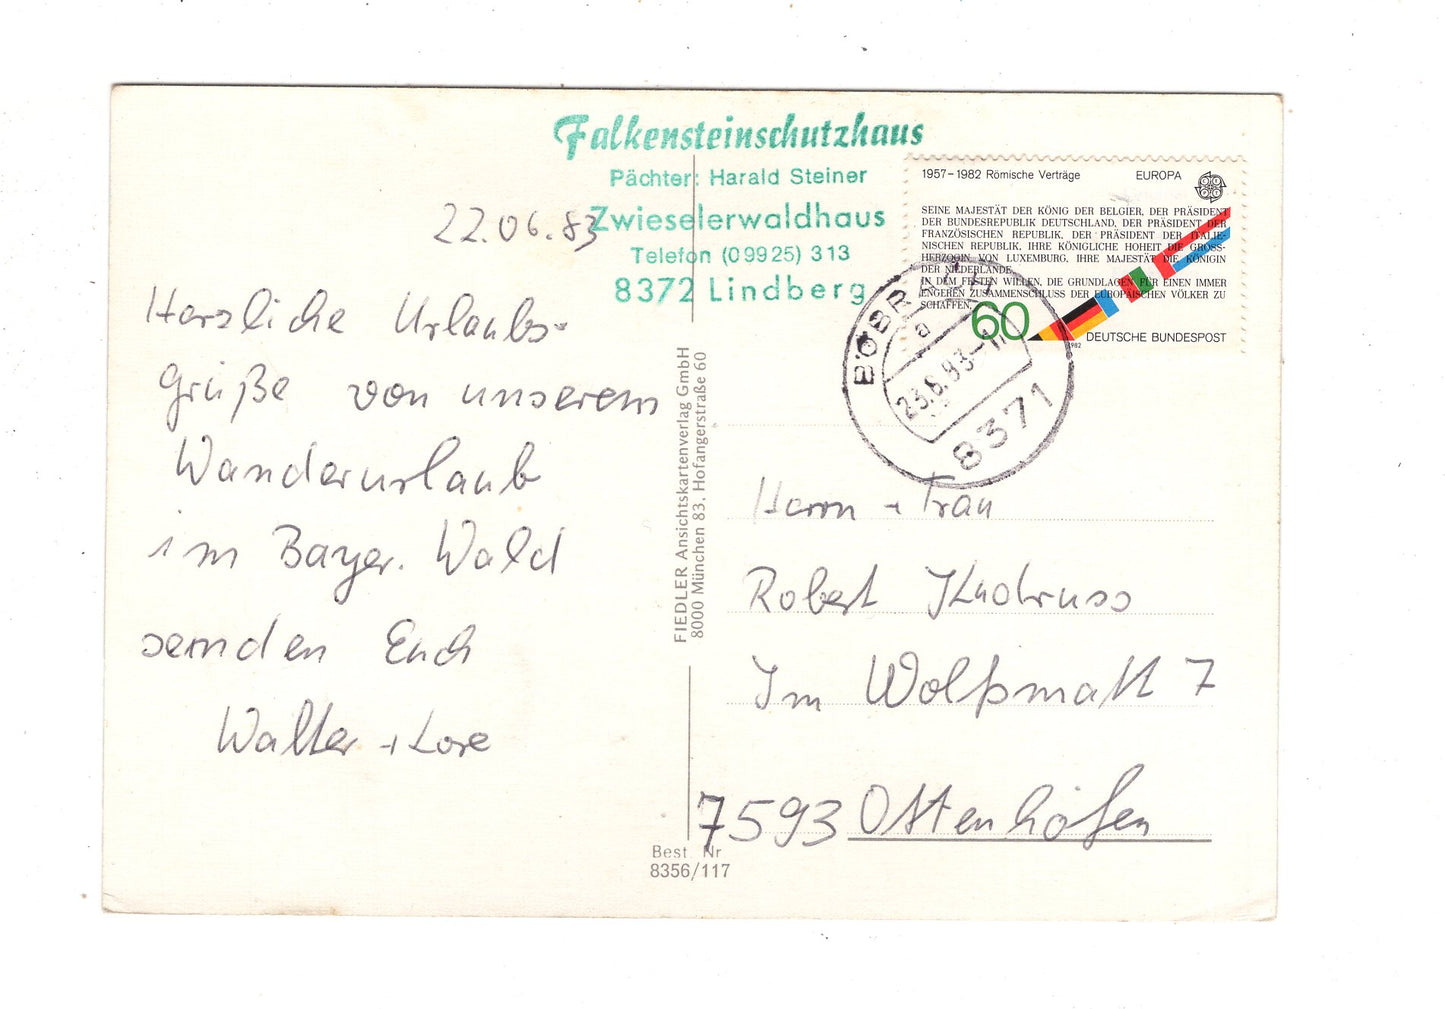 Falkensteinschutzhaus
Pächter: Harald Steiner
Zwieselerwaldhaus
Telefon (09925) 313
8372 Lindberg
22.06.83
Herzliche Urlaubs-
grüße von unserem
Wanderurlaub
im Bayer. Wald
senden Euch
Walter + Lore
FIEDLER Ansichtskartenverlag GmbH
8000 München 83. Hofangerstraße 60
Best. Nr
8356/117
1957–1982 Römische Verträge EUROPA
SEINE MAJESTÄT DER KÖNIG DER BELGIER, DER PRÄSIDENT
DER BUNDESREPUBLIK DEUTSCHLAND, DER PRÄSIDENT DER
FRANZÖSISCHEN REPUBLIK, DER PRÄSIDENT DER ITALIE-
NISCHEN REPUBLIK, IHRE KÖNIGLICHE HOHEIT DIE GROSS-
HERZOGIN VON LUXEMBURG, IHRE MAJESTÄT DIE KÖNIGIN
DER NIEDERLANDE,
IN DEM FESTEN WILLEN, DIE GRUNDLAGEN FÜR EINEN IMMER
ENGEREN ZUSAMMENSCHLUSS DER EUROPÄISCHEN VÖLKER ZU
SCHAFFEN,
60
DEUTSCHE BUNDESPOST
1982
BÖBRACH
a
23.6.83
8371
Herrn + Frau
Robert
Im Wolfsmatt 7
7593 Ottenhöfen